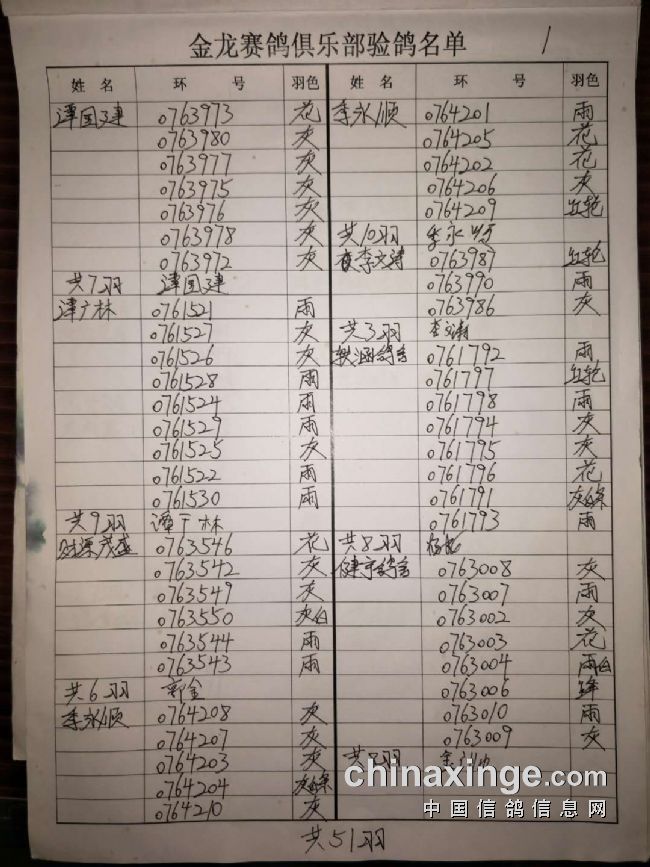 金龙赛鸽俱乐部验鸽名单
1
姓 名 环 号 羽色
谭国建 0763973 花
0763980 灰
0763977 灰
0763975 灰
0763976 灰
0763978 灰
0763972 灰
共7羽 谭国建
谭广林 0761521 雨
0761527 灰
0761526 灰
0761528 雨
0761524 雨
0761529 雨
0761525 灰
0761522 雨
0761530 雨
共9羽 谭广林
财源茂盛 0763546 花
0763542 灰
0763549 灰
0763550 灰白
0763544 雨
0763543 雨
共6羽
李永顺 0764208 灰
0764207 灰
0764203 灰
0764204 灰白条
0764210 灰
姓 名 环 号 羽色
李永顺 0764201 雨
0764205 花
0764202 花
0764206 灰
0764209 红轮
共10羽 李永顺
李文涛 0763987 红轮
0763990 雨
0763986 灰
共3羽 李文涛
轶涵鸽舍 0761792 雨
0761797 红轮
0761798 雨
0761794 灰
0761795 灰
0761796 花
0761791 灰白条
0761793 雨
共8羽
健宇鸽舍 0763008 灰
0763007 雨
0763002 灰
0763003 花
0763004 雨白
0763006
0763010 雨
0763009 灰
共8羽
共51羽
chinaxinge.com
中国信鸽信息网